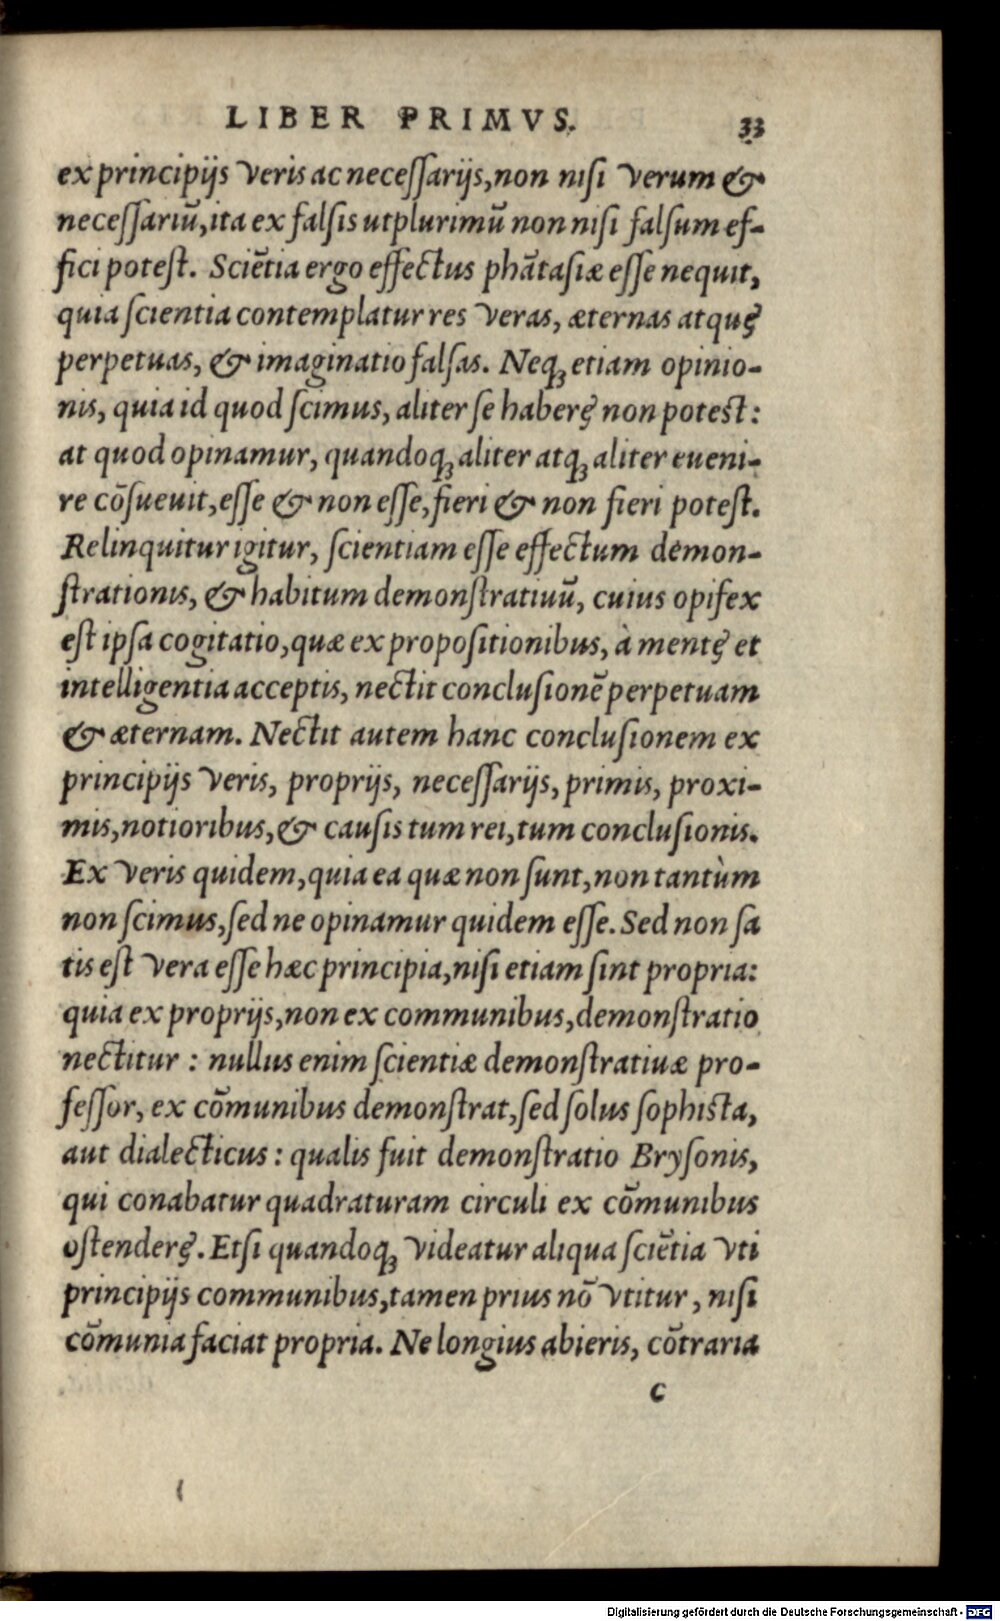 LIBER PRIMVS. 33
ex principijs veris ac neceſſarijs, non niſi verum &
neceſſariū, ita ex falſis utplurimū non niſi falſum ef-
fici poteſt. Sciētia ergo effectus phātaſiæ eſſe nequit,
quia ſcientia contemplatur res veras, æternas atque
perpetuas, & imaginatio falſas. Neq; etiam opinio-
nis, quia id quod ſcimus, aliter ſe habere non poteſt:
at quod opinamur, quandoq; aliter atq; aliter eueni-
re cōſueuit, eſſe & non eſſe, fieri & non fieri poteſt.
Relinquitur igitur, ſcientiam eſſe effectum demon-
ſtrationis, & habitum demonſtratiuū, cuius opifex
eſt ipſa cogitatio, quæ ex propoſitionibus, à mente et
intelligentia acceptis, nectit concluſionē perpetuam
& æternam. Nectit autem hanc concluſionem ex
principijs veris, proprijs, neceſſarijs, primis, proxi-
mis, notioribus, & cauſis tum rei, tum concluſionis.
Ex veris quidem, quia ea quæ non ſunt, non tantùm
non ſcimus, ſed ne opinamur quidem eſſe. Sed non ſa
tis eſt vera eſſe hæc principia, niſi etiam ſint propria:
quia ex proprijs, non ex communibus, demonſtratio
nectitur : nullus enim ſcientiæ demonſtratiuæ pro-
feſſor, ex cōmunibus demonſtrat, ſed ſolus ſophiſta,
aut dialecticus : qualis fuit demonſtratio Bryſonis,
qui conabatur quadraturam circuli ex cōmunibus
oſtendere. Etſi quandoq; videatur aliqua ſciētia vti
principijs communibus, tamen prius nō vtitur, niſi
cōmunia faciat propria. Ne longius abieris, cōtraria
c
Digitalisierung gefördert durch die Deutsche Forschungsgemeinschaft - DFG